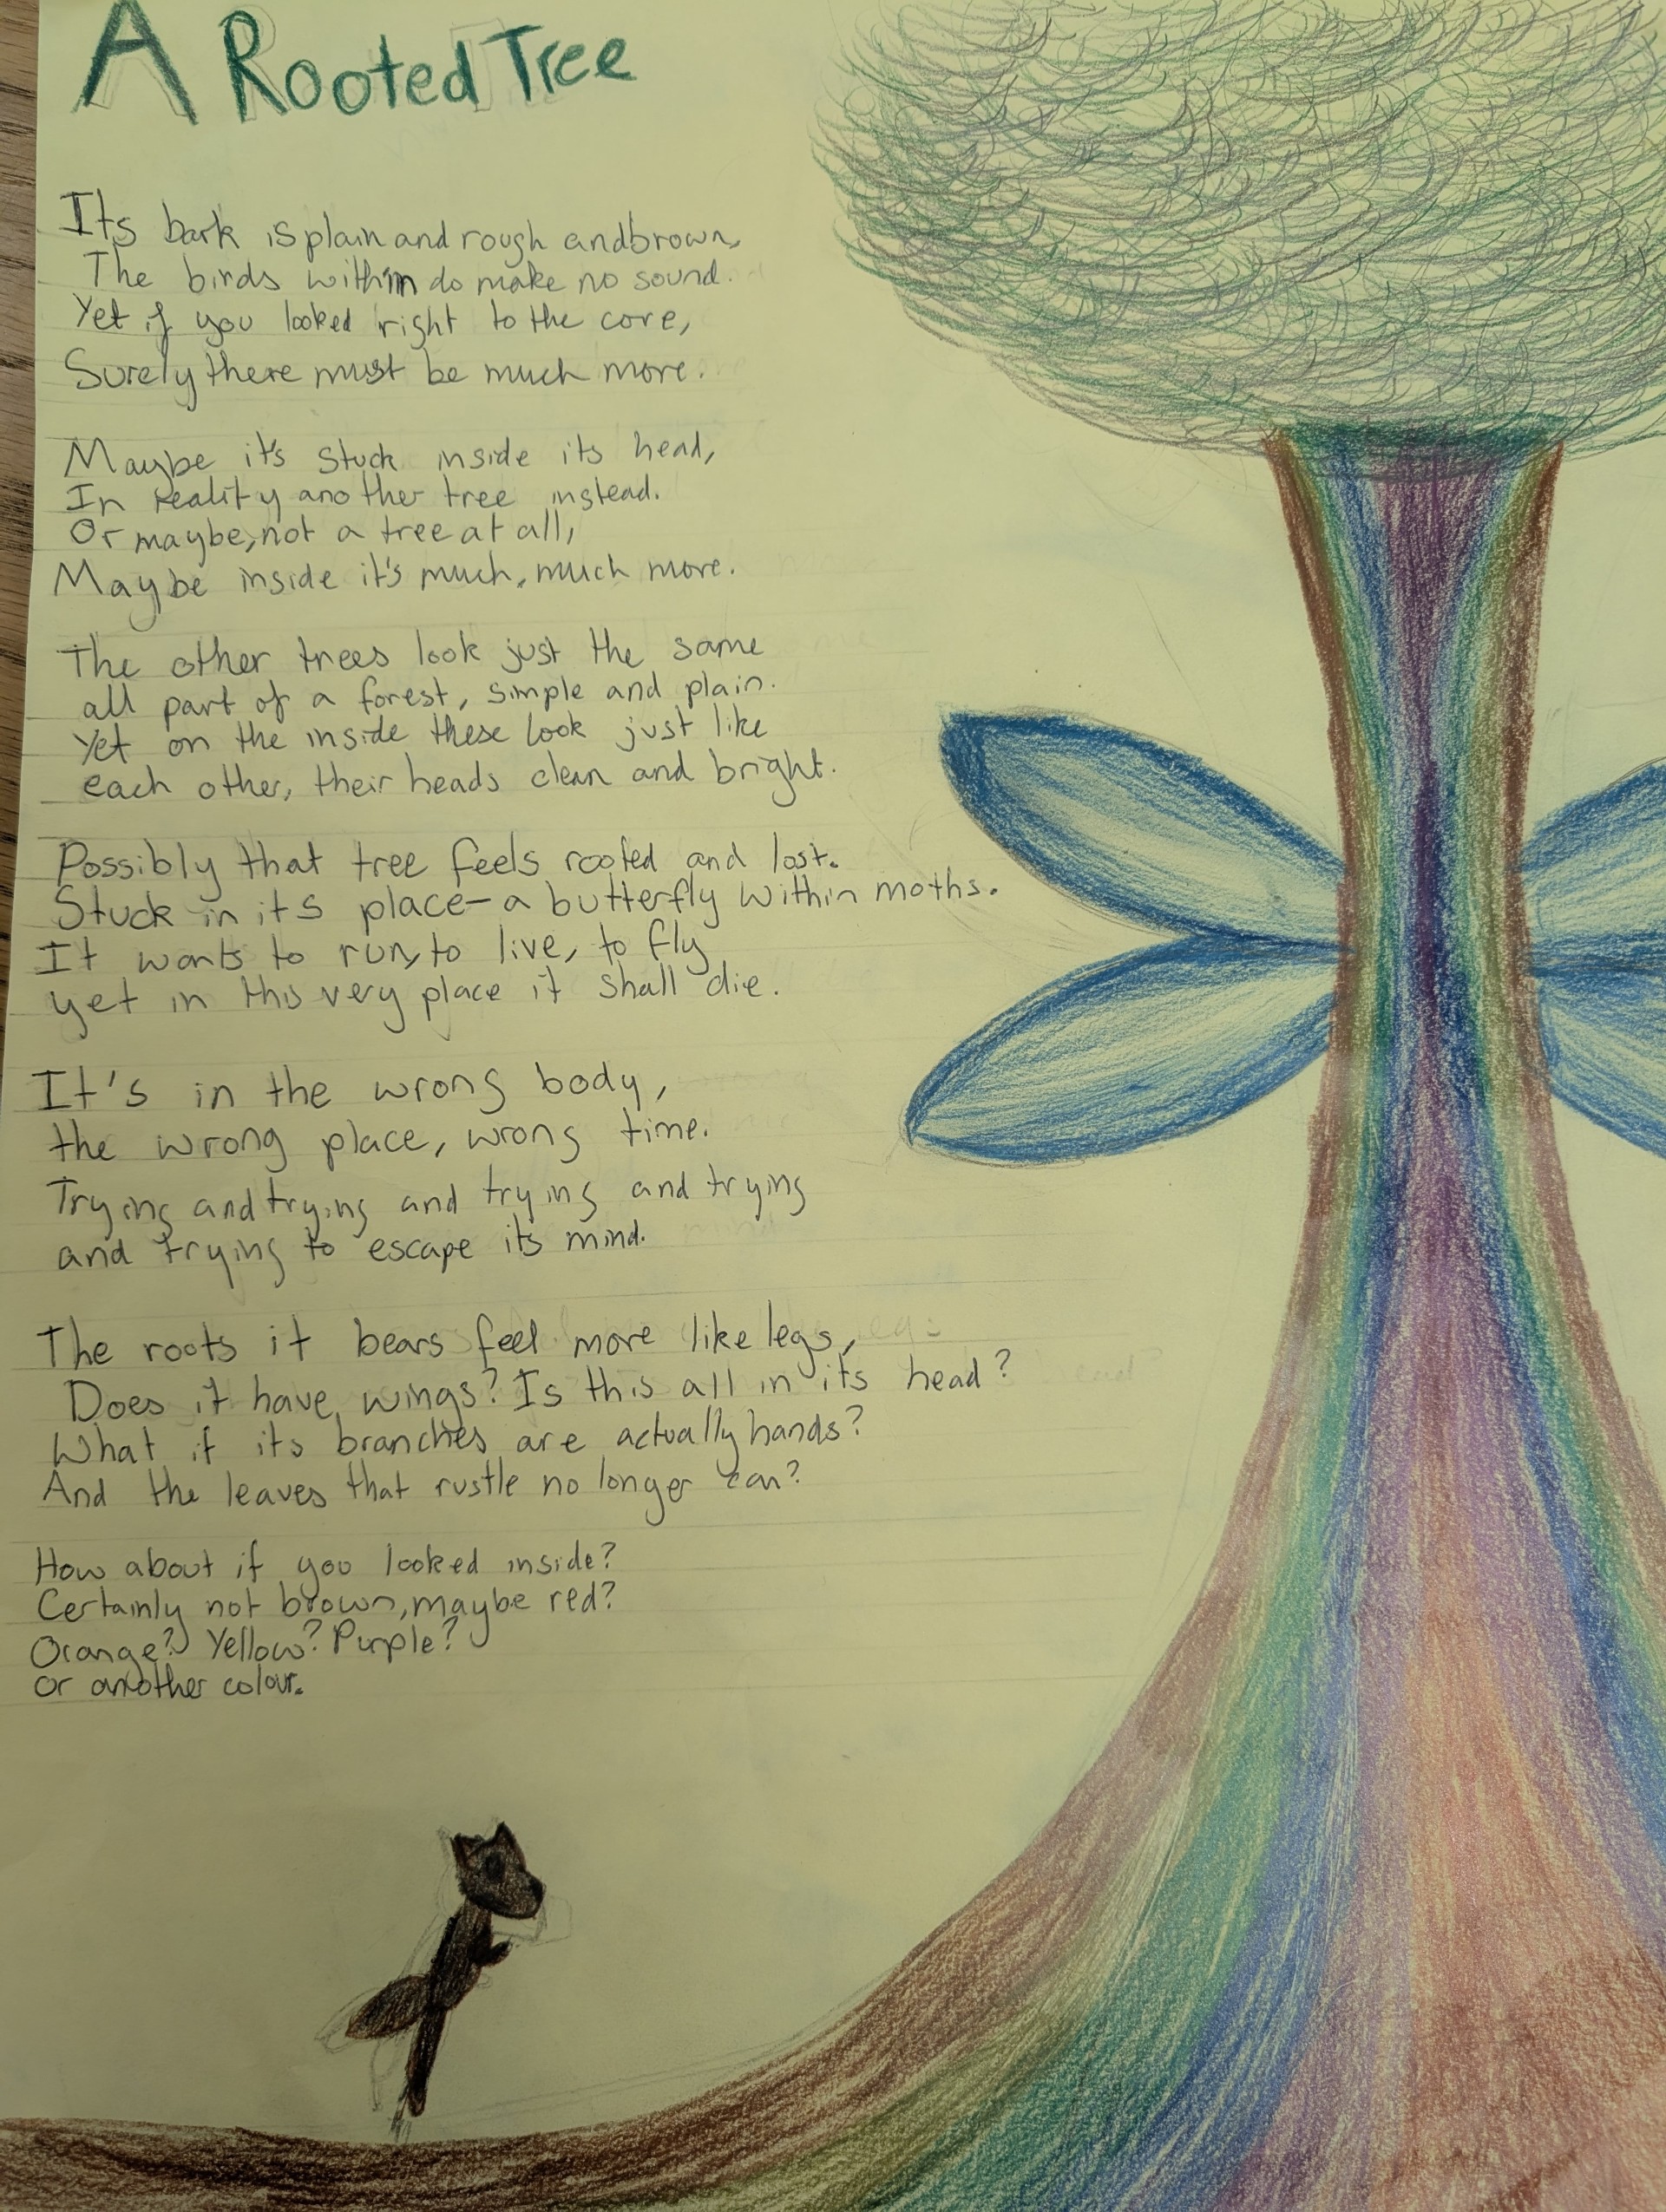 A Rooted Tree
Its bark is plain and rough and brown,
The birds within do make no sound.
Yet if you looked right to the core,
Surely there must be much more.
Maybe it's stuck inside its head,
In reality another tree instead.
Or maybe, not a tree at all,
Maybe inside it's much, much more.
The other trees look just the same
all part of a forest, simple and plain.
Yet on the inside these look just like
each other, their heads clean and bright.
Possibly that tree feels rooted and lost.
Stuck in its place- a butterfly within moths.
It wants to run, to live, to fly
yet in this very place it shall die.
It's in the wrong body,
the wrong place, wrong time.
Trying and trying and trying and trying
and trying to escape its mind.
The roots it bears feel more like legs,
Does it have wings? Is this all in its head?
What if its branches are actually hands?
And the leaves that rustle no longer can?
How about if you looked inside?
Certainly not brown, maybe red?
Orange? Yellow? Purple?
or another colour.